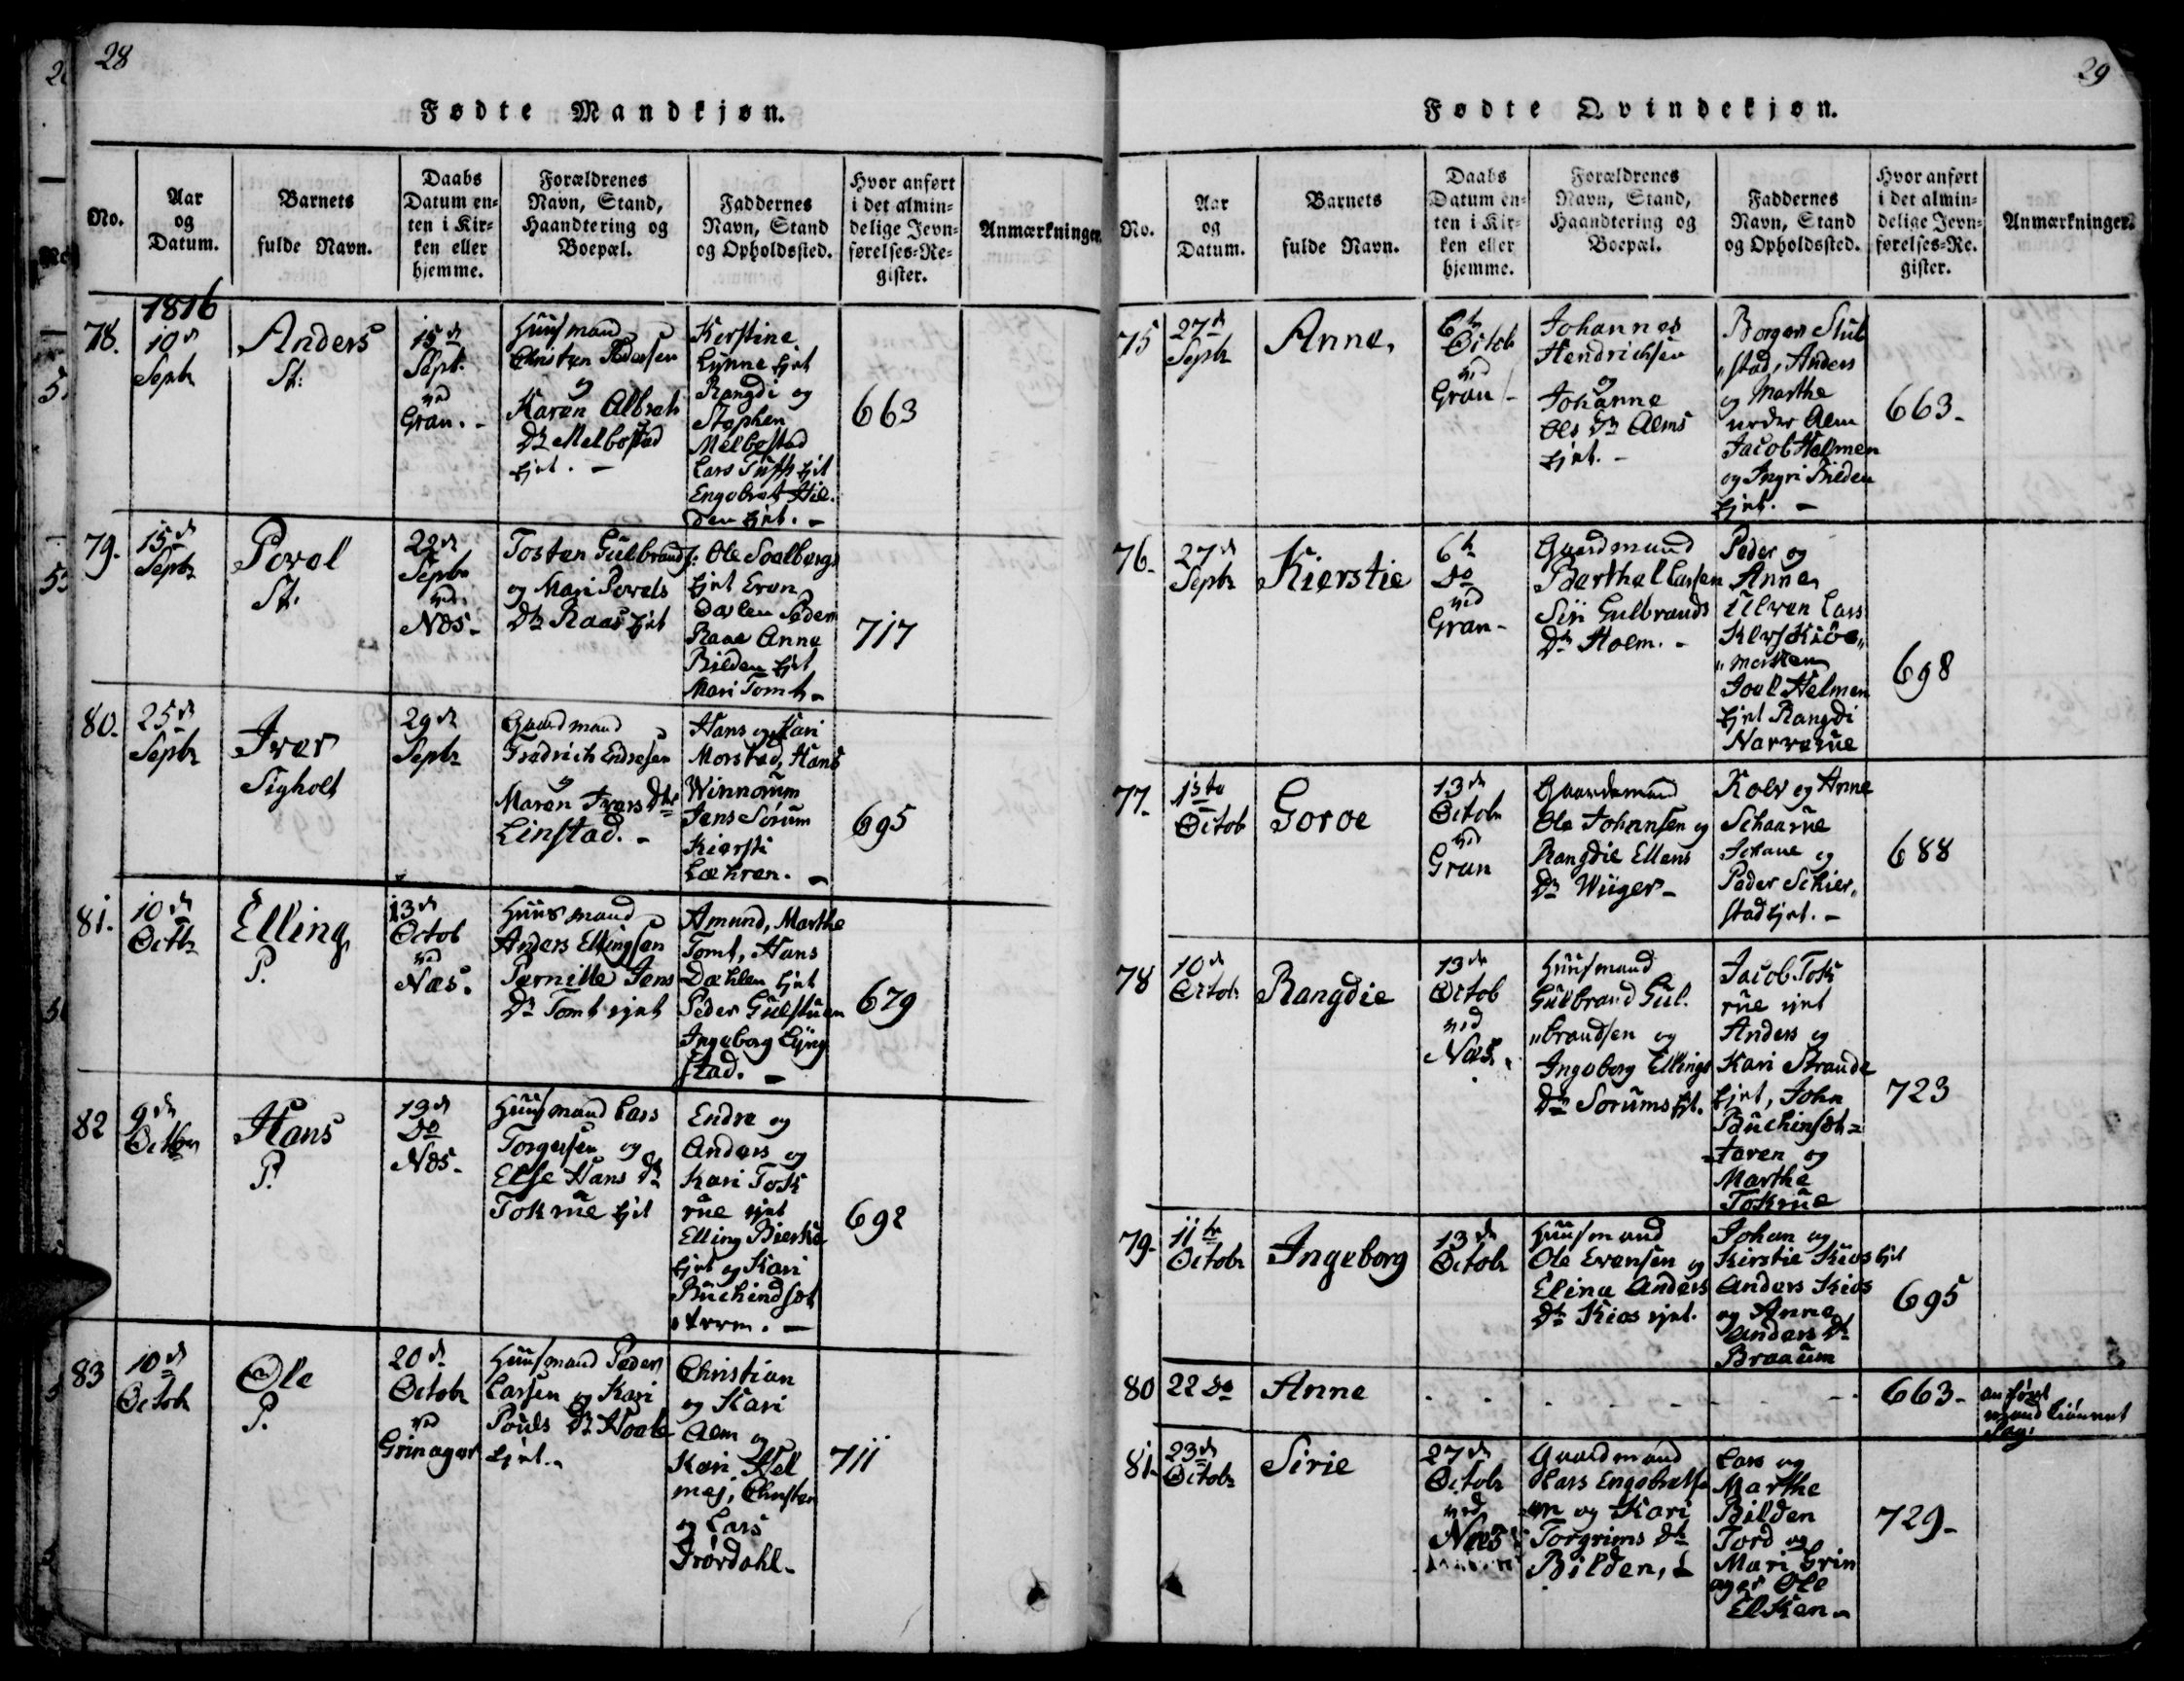 28
Fødte Mandkjøn.
No.
Aar
og
Datum.
Barnets
fulde Navn.
Daabs
Datum en-
ten i Kir-
ken eller
hjemme.
Forældrenes
Navn, Stand,
Haandtering og
Boepæl.
Faddernes
Navn, Stand
og Opholdssted.
Hvor anført
i det almin-
delige Jevn-
førelses-Re-
gister.
Anmærkninger.
1816
78.
10de
Septr
Anders
St.
15de
Sept.
ved
Gran. -
Huusmand
Christen Pedersen
og
Karen Albreth
Dtr Melbostad
Ejet. -
Kerstine
Lynne Ejet
Rangdi og
Stephen
Melbostad
Lars Ejet
Engebret Hil-
den Ejet. -
663
79.
15de
Septr
Povel
St.
22de
Septr
ved
Næs.
Tosten Gulbrands.
og Mari Povels
Dtr Raas Ejet
Ole Soelbergs
Ejet Even
Dælen Peder
Raae Anne
Bilden Ejet
Mari Tomt -
717
80.
25de
Septr
Iver
Sigholt
29de
Septr
Gaardmand
Fredrich Endresen
og
Maren Ivers Dtr
Linstad. -
Hans og Kari
Morstad, Hans
Winnorum
Jens Sorum
Kiersti
Læhren. -
695
81.
10de
Octbr
Elling
P.
13de
Octob
ved
Næs.
Huusmand
Anders Ellingsen
Pernille Jens
Dtr Tomt ejet
Amund, Marthe
Tomt, Hans
Dæhlen Ejet
Peder Gulstuen
Ingeborg Lyng
stad. -
679
82
9de
Octbr
Hans
P.
13de
Do
Næs.
Huusmand Lars
Torgersen og
Else Hans Dtr
Tokrue Ejet
Endre og
Anders og
Kari Tok
rue ejet
Elling Bierke
Ejet og Kari
Buchindsæt
692
83
10de
Octob
Ole
P.
20de
Octobr
ved
Grinager
Huusmand Peder
Larsen og Kari
Pouls Dtr Hoale
Ejet.
Christian
og Kari
Alm og
Kari Hel
mej, Christen
og Lars
Frørdahl.
711
29
Fødte Qvindekjøn.
No.
Aar
og
Datum.
Barnets
fulde Navn.
Daabs
Datum en-
ten i Kir-
ken eller
hjemme.
Forældrenes
Navn, Stand,
Haandtering og
Boepæl.
Faddernes
Navn, Stand
og Opholdssted.
Hvor anført
i det almin-
delige Jevn-
førelses-Re.
gister.
Anmærkninger.
75
27de
Septr
Anne,
6te
Octob
ved
Gran -
Johannes
Hendrichsen
og
Johanne
Ols Dtr Alms
Ejet. -
Borger Slub
"stad, Anders
og Marthe
neder Alm
Jacob Helmen
og Ingri Hilden
Ejet. -
663-
76.
27de
Septr
Kierstie
6te
Do
ved
Gran -
Gaardmand
Barthel Larsen
Siri Gulbrands
Dtr Holm. -
Peder og
Anne
Ulven Lars
"marken
Joel Helmen
Ejet Rangdi
Narverue
698
77.
1ste
Octob
Goroe
13de
Octobr
ved
Gran
Gaardmand
Ole Johansen og
Rangdie Ellens
Dtr Wiiger -
Kolv og Anne
Schaarue
og
Peder Schier,
stad Ejet. -
688
78
10de
Octobr
Rangdie
13de
Octob
ved
Næs.
Huusmand
Gulbrand Gul.
"brandsen og
Ingeborg Ellings
Dtr Sorums Ejt.
Jacob Tok
rue ejet
Anders og
Kari Strande
Ejet, John
Buchinsæt=
=teren og
Marthe
Tokrue
723
79.
11te
Octobr
Ingeborg
13de
Octobr
Huusmand
Ole Evensen og
Eline Anders
Dtr Kios ejet.
Johan og
Kirstie Kios Ejet
Anders Kios
og Anne
Anders Dtr
Braaum
695
80
22 Do
Anne
663-
anført
81.
23de
Octobr
Sirie
27de
Octobr
ved
Næs
Gaardmand
Lars Engebrets
en og Kari
Torgrims Dtr
Bilden,
Lars og
Marthe
Bilden
Tord og
Mari Grin
ager Ole
Elken.
729-